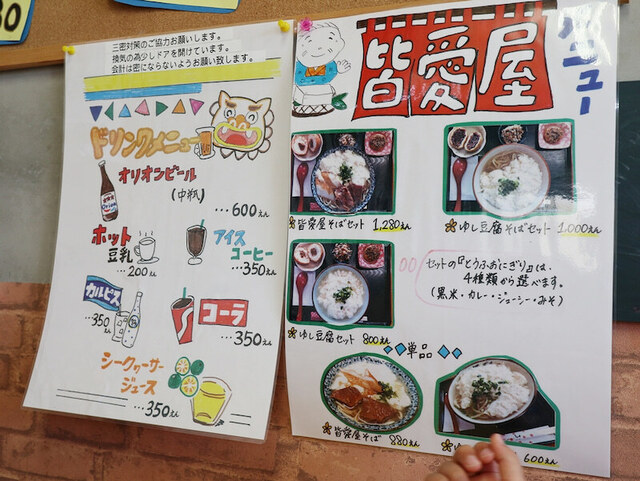 三密対策のご協力お願いします。
換気の為少しドアを開けています。
会計は密にならないようお願い致します。
ドリンクメニュー
オリオンビール
(中瓶)
…600えん
ホット
豆乳
…200えん
アイス
コーヒー
…350えん
カルピス
…350えん
コーラ
…350えん
シークヮーサー
ジュース
…350えん
メニュー
皆愛屋
皆愛屋そばセット 1,280えん
ゆし豆腐そばセット 1,000えん
ゆし豆腐セット 800えん
セットの『とうふおにぎり』は、
4種類から選べます。
(黒米・カレー・ジューシー・みそ)
単品
皆愛屋そば 880えん
600えん